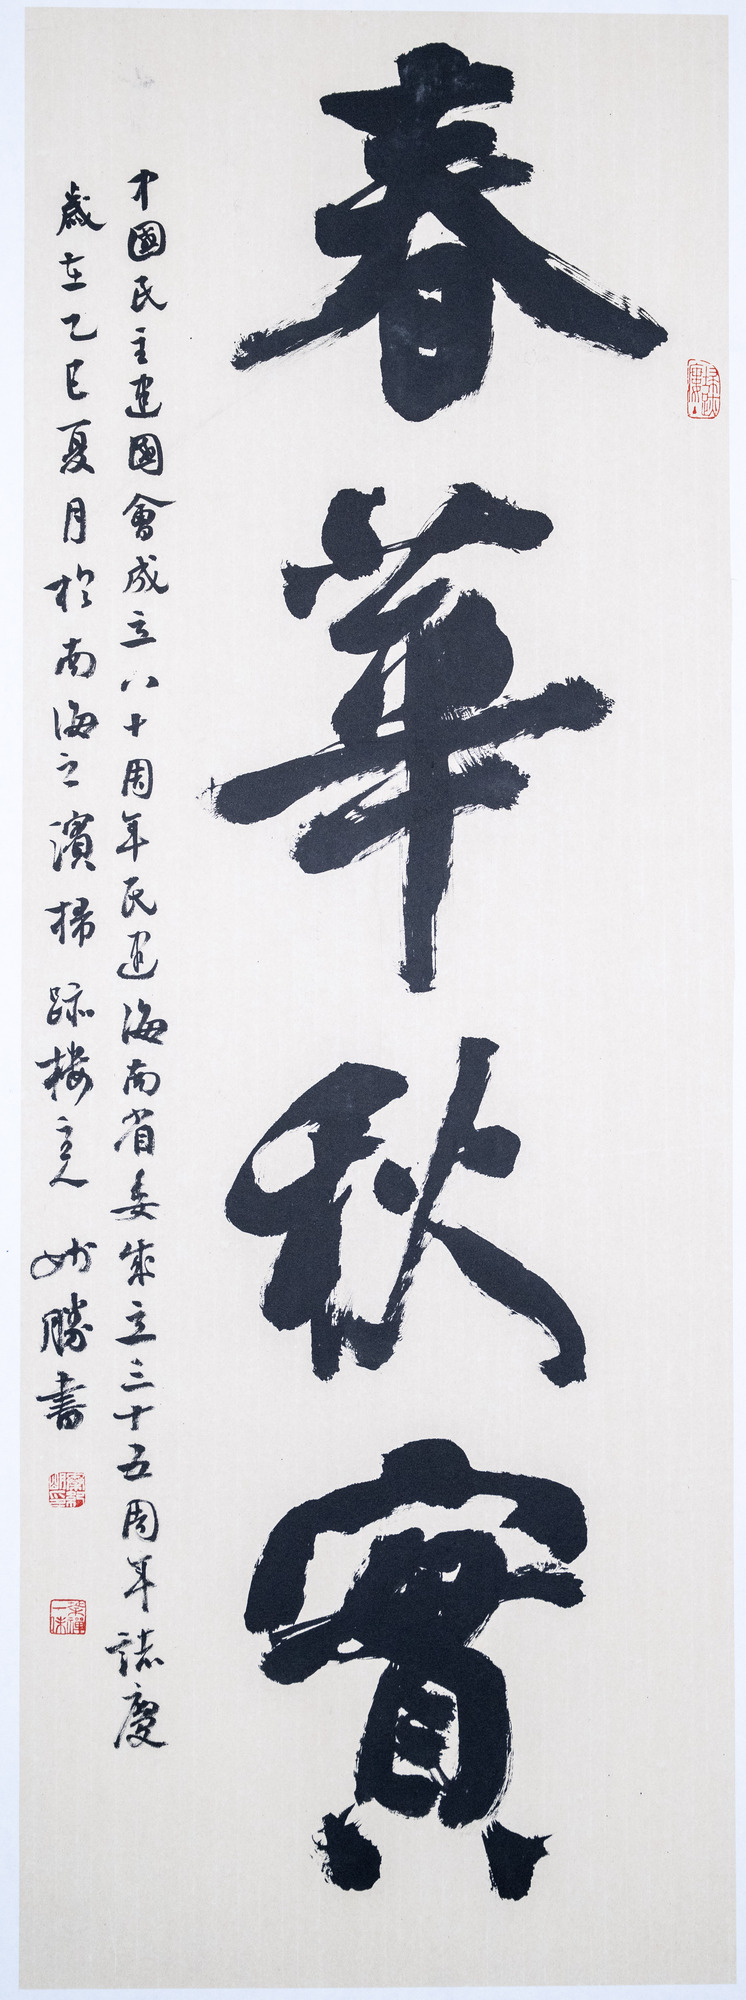 春華秋實
中國民主建國會成立八十周年民建海南省委成立三十五周年誌慶
歲在乙巳夏月於南海之濱掃跡樓主人 勝書